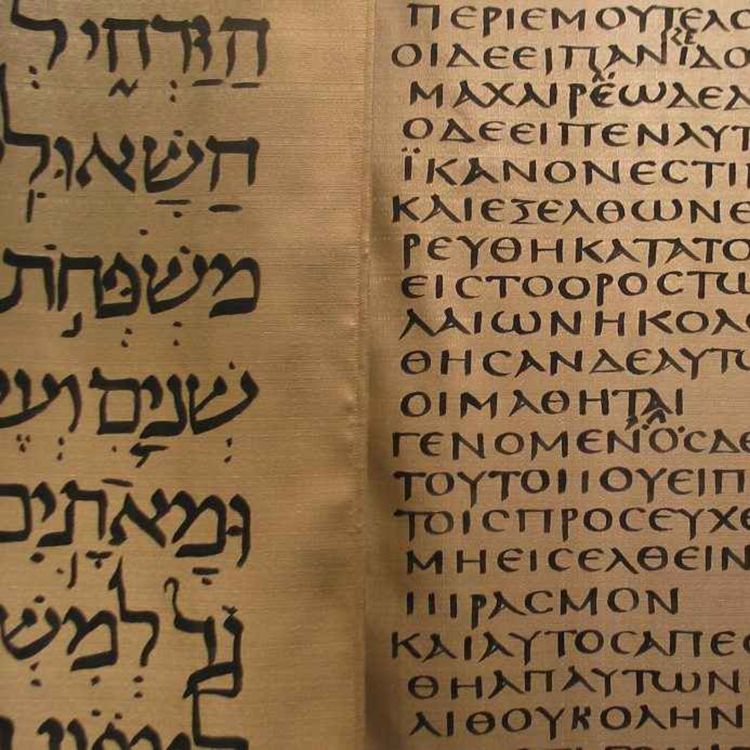 הַזַּרְחִ֑י
מִשְׁפְּחֹת
שְׁנַ֧יִם
וּמָאתָֽיִם
גָד
ΠΕΡΙΕΜΟΥΤΕΛΟ
ΟΙΔΕΕΙΠΑΝΪΔΟ
ΜΑΧΑΙΡΕΩΔΕΔ
ΟΔΕΕΙΠΕΝΑΥΤ
ΪΚΑΝΟΝΕϹΤΙ
ΚΑΙΕΞΕΛΘΩΝΕ
ΡΕΥΘΗΚΑΤΑΤΟ
ΕΙϹΤΟΟΡΟϹΤΩ
ΛΑΙΩΝΗΚΟΛΟ
ΘΗϹΑΝΔΕΑΥΤΩ
ΟΙΜΑΘΗΤΑΙ
ΓΕΝΟΜΕΝΟϹΔΕ
ΤΟΥΤΟΠΟΥΕΙΠ
ΤΟΙϹΠΡΟϹΕΥΧΕ
ΜΗΕΙϹΕΛΘΕΙΝ
ΠΙΡΑϹΜΟΝ
ΚΑΙΑΥΤΟϹΑΠΕϹ
ΘΗΑΠΑΥΤΩΝ
ΛΙΘΟΥΚΟΛΗΝ